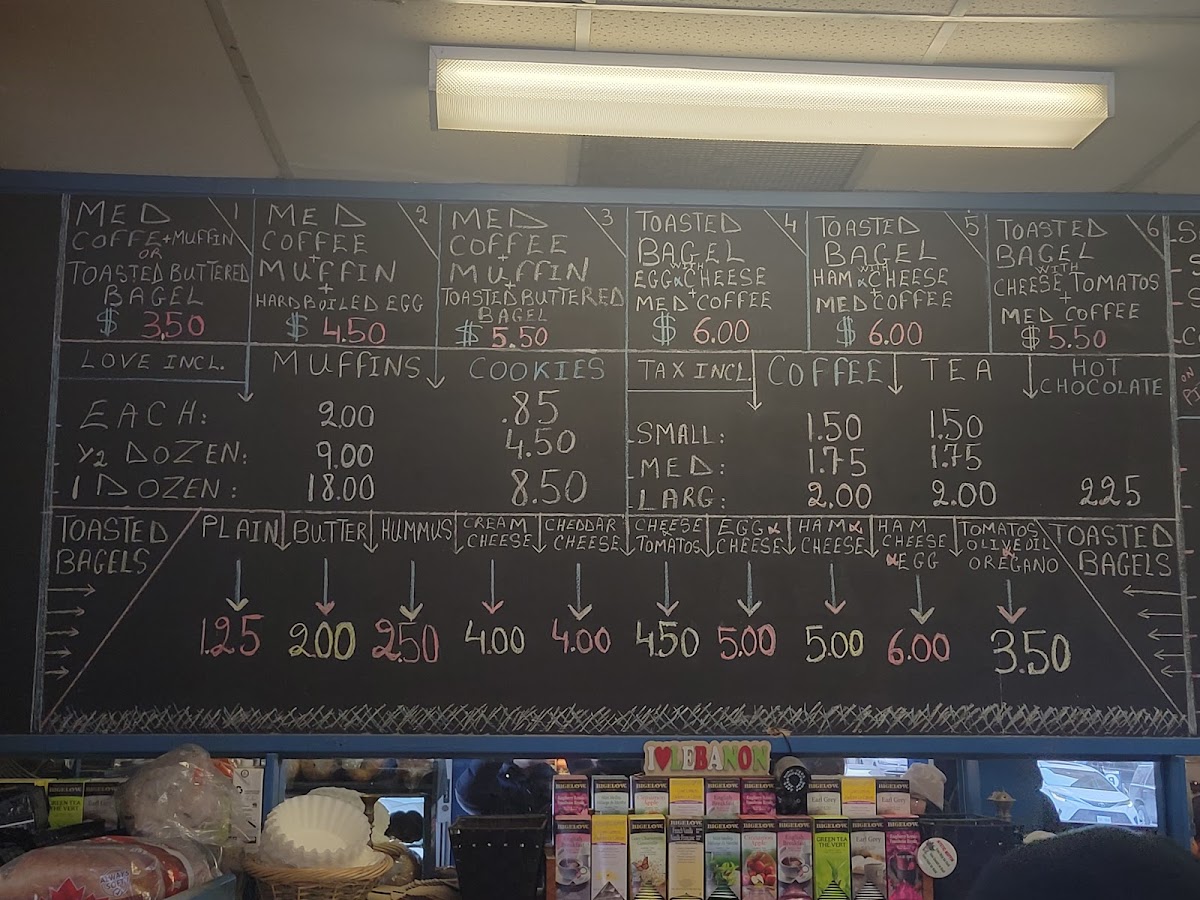 MED 1
COFFE+MUFFIN
OR
TOASTED BUTTERED
BAGEL
$ 3,50
MED 2
COFFEE
+
MUFFIN
+
HARDBOILED EGG
$ 4.50
MED 3
COFFEE
+
MUFFIN
+
TOASTED BUTTERED
BAGEL
$ 5.50
TOASTED 4
BAGEL
WITH
EGG & CHEESE
+
MED COFFEE
$ 6.00
TOASTED 5
BAGEL
WITH
HAM & CHEESE
+
MED COFFEE
$ 6.00
TOASTED 6
BAGEL
WITH
CHEESE, TOMATOS
+
MED COFFEE
$ 5.50
LOVE INCL. MUFFINS COOKIES
EACH: 2.00 .85
1/2 DOZEN: 9.00 4.50
1 DOZEN: 18.00 8.50
TAX INCL. COFFEE TEA HOT CHOCOLATE
SMALL: 1.50 1.50
MED: 1.75 1.75
LARG: 2.00 2.00 225
TOASTED
BAGELS
PLAIN
1.25
BUTTER
2.00
HUMMUS
2.50
CREAM
CHEESE
4.00
CHEDDAR
CHEESE
4.00
CHEESE
TOMATOS
4.50
EGG &
CHEESE
5.00
HAM &
CHEESE
5.00
HAM
CHEESE
& EGG
6.00
TOMATOS
OLIVE OIL
& OREGANO
3.50
TOASTED
BAGELS
I ♥ LEBANON
BIGELOW
BIGELOW
BIGELOW
BIGELOW
BIGELOW
BIGELOW
Earl Grey
Earl Grey
GREEN TEA
THÉ VERT
Earl Grey
GREEN TEA